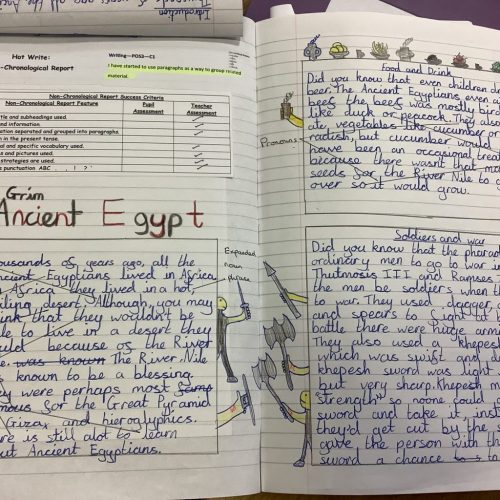 Introduction
Hot Write:
-Chronological Report
Writing—POS3—C1
I have started to use paragraphs as a way to group related
material.
Non-Chronological Report Success Criteria
Non-Chronological Report Feature
Pupil
Assessment
Teacher
Assessment
tle and subheadings used.
nd information.
ation separated and grouped into paragraphs.
n in the present tense.
al and specific vocabulary used.
s and pictures used.
strategies are used.
e punctuation. ABC , . ! ? '
Grim
Ancient Egypt
ousands of years ago, all the
ncient Egyptians lived in Africa.
n Africa they lived in a hot,
iling desert. Although, you may
ink that they wouldn't be
le to live in a desert they
ould because of the River
e. was known The River Nile
s known to be a blessing.
ey were perhaps most
mous for the Great Pyramid
Gizax and hieroglyphics.
ere is still alot to learn
out Ancient Egyptians.
Expanded
noun
phrase
Food and Drink
Did you know that even children d
beer. The Ancient Egyptians even
beef, the beef was mostly bird
like duck or peacock. They also
ate, vegetables like cucumber or
radish, but cucumber would
have been an occasional trea
because there wasn't that ma
seeds for the River Nile to
over so it would grow.
Pronouns
Soldiers and war
Did you know that the pharao
ordinary men to go to war
Thutmosis III and Ramses
the men be soldiers when th
to war. They used dagger,
and spears to fight
battle there were huge arm
They also used a Khepesh
which was swift and
khepesh sword was light
but very sharp. Khepesh
strength" so noone could
sword and take it, inst
they'd get cut by the s
gave the person with th
sword a chance to